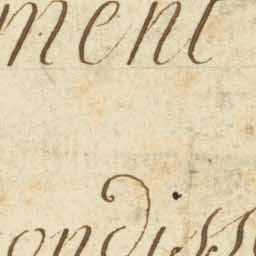 ment
ondiss